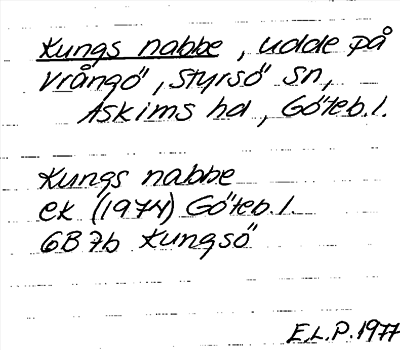 Kungs nabbe, udde på
Vrångö, Styrsö sn,
Askims hd, Göteb. l.
Kungs nabbe
ek (1974) Göteb. l.
6B 7b Kungsö
E.L.P. 1977